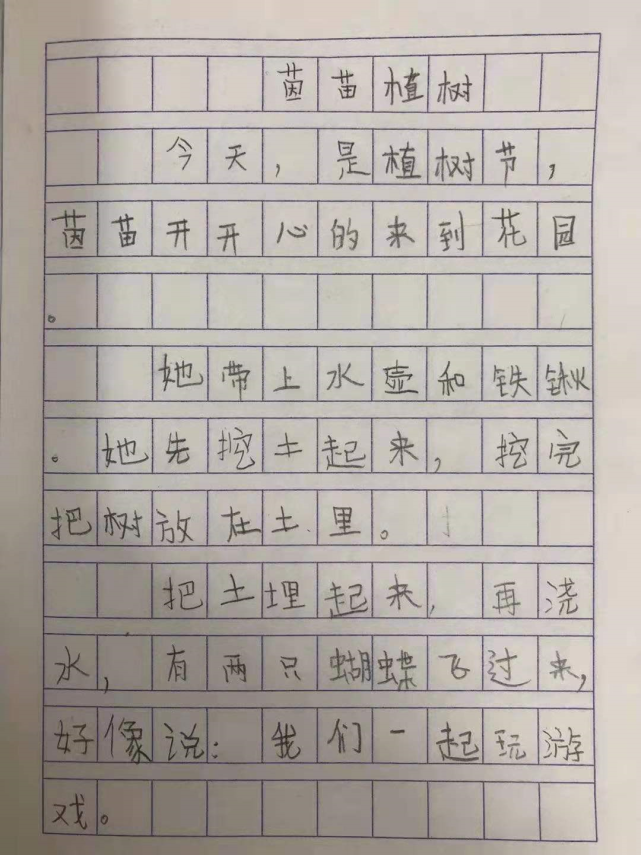 茵苗植树
今天，是植树节，
茵苗开开心的来到花园
。
她带上水壶和铁锹
。她先挖土起来，挖完
把树放在土里。
把土埋起来，再浇
水，有两只蝴蝶飞过来，
好像说：我们一起玩游
戏。